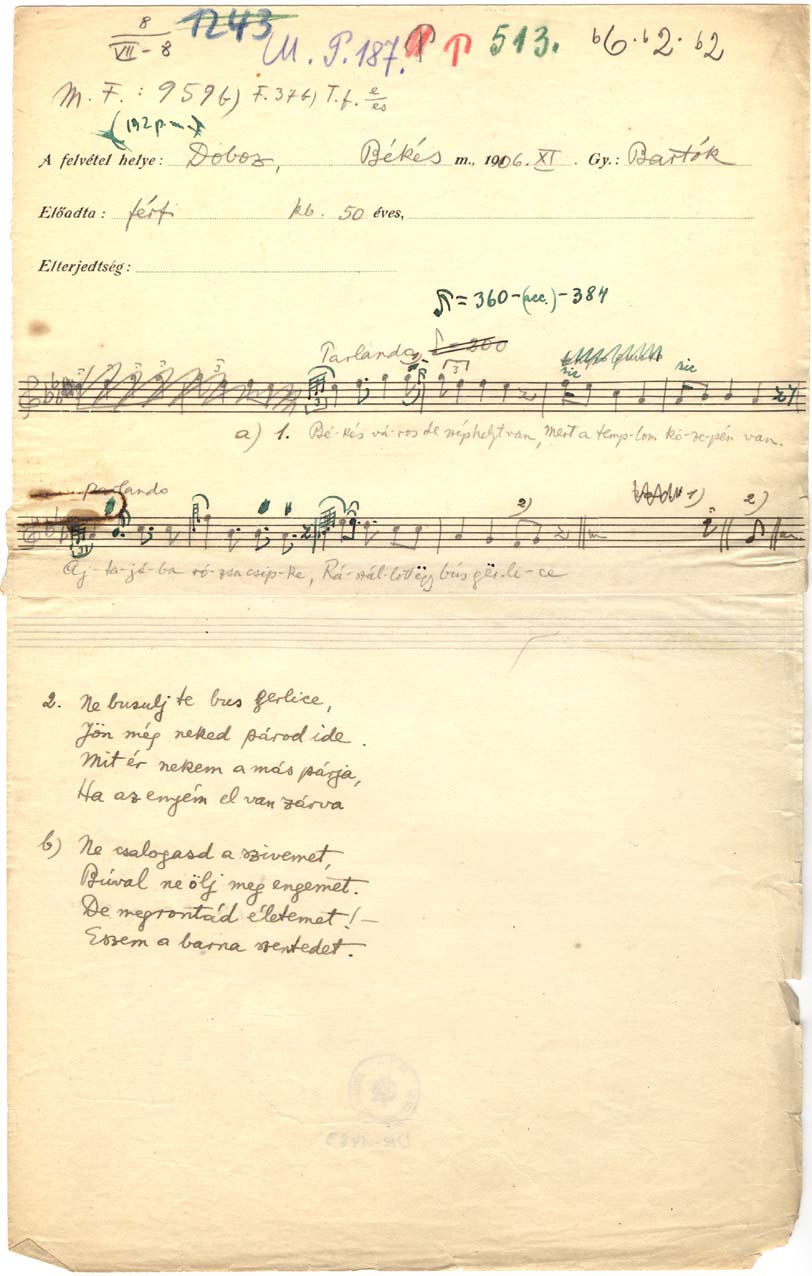 8
VII - 8
1243
M. P. 187.
P 513.
b6. b2. b2
M. F. : 959 b) F. 37 b) T. f. e/es
(192 p. m.)
A felvétel helye: Doboz, Békés m., 1906. XI. Gy.: Bartók
Előadta: férfi kb. 50 éves,
Elterjedtség:
= 360-(acc.)-384
Parlando = 360
3 3 3 3 3
sic sic
a) 1. Bé-kés vá-ros de szép helyt van, mert a temp-lom kö-ze-pén van.
parlando 2) 1) 2)
Aj-ta-já-ba ró-zsa csip-ke, Rá-szál-lott ëgy bús gër-li-ce
2. Ne busulj te bus gerlice,
Jön még neked párod ide.
Mit ér nekem a más párja,
Ha az enyém el van zárva
b) Ne csalogasd a szivemet,
Búval ne ölj meg engemet.
De megrontád életemet! –
Eszem a barna szentedet.